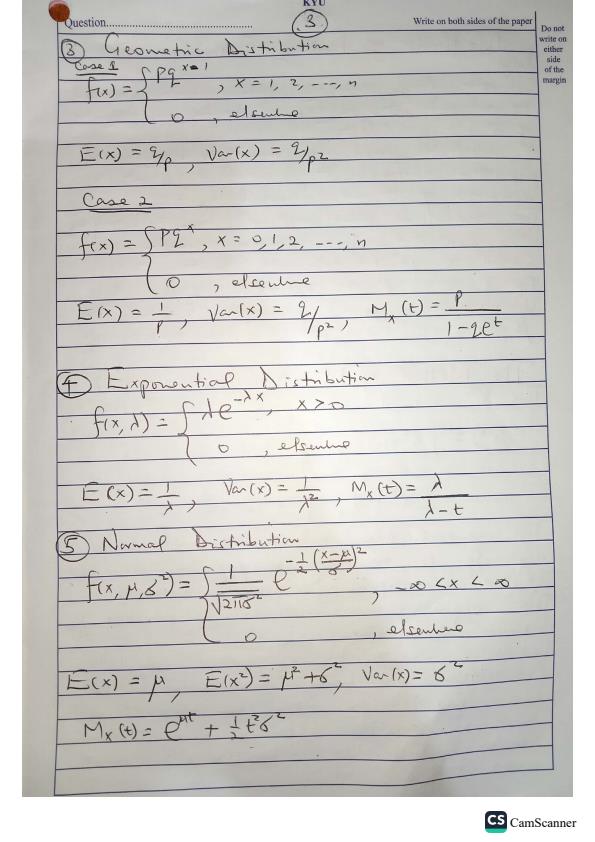 KYU
Question...
3
Write on both sides of the paper
Do not
write on
either
side
of the
margin
③ Geometric Distribution
Case 1
f(x) = { pq^{x-1} , x = 1, 2, ---, n
0 , elsewhere
E(x) = q/p , Var(x) = q/p²
Case 2
f(x) = { pq^x , x = 0, 1, 2, ---, n
0 , elsewhere
E(x) = 1/p , Var(x) = q/p² , M_x(t) = p/(1-qe^t)
④ Exponential Distribution
f(x, λ) = { λe^{-λx} , x > 0
0 , elsewhere
E(x) = 1/λ , Var(x) = 1/λ² , M_x(t) = λ/(λ-t)
⑤ Normal Distribution
f(x, μ, σ²) = { 1/√(2πσ²) e^{-½((x-μ)/σ)²} , -∞ < x < ∞
0 , elsewhere
E(x) = μ , E(x²) = μ² + σ² , Var(x) = σ²
M_x(t) = e^{μt} + ½t²σ²
CS CamScanner